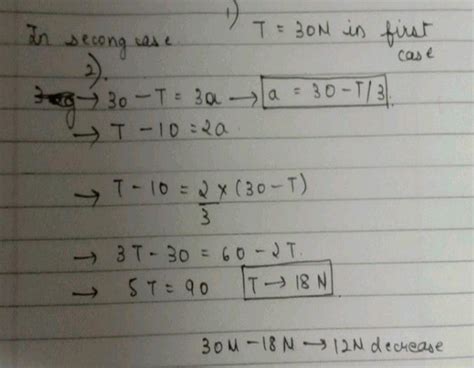 1) T = 30N in first case
In secong case
2).
→ 30 - T = 3a → a = 30 - T/3.
→ T - 10 = 2a
→ T - 10 = 2/3 × (30 - T)
→ 3T - 30 = 60 - 2T.
→ 5T = 90 T → 18 N
30N - 18N → 12N decrease